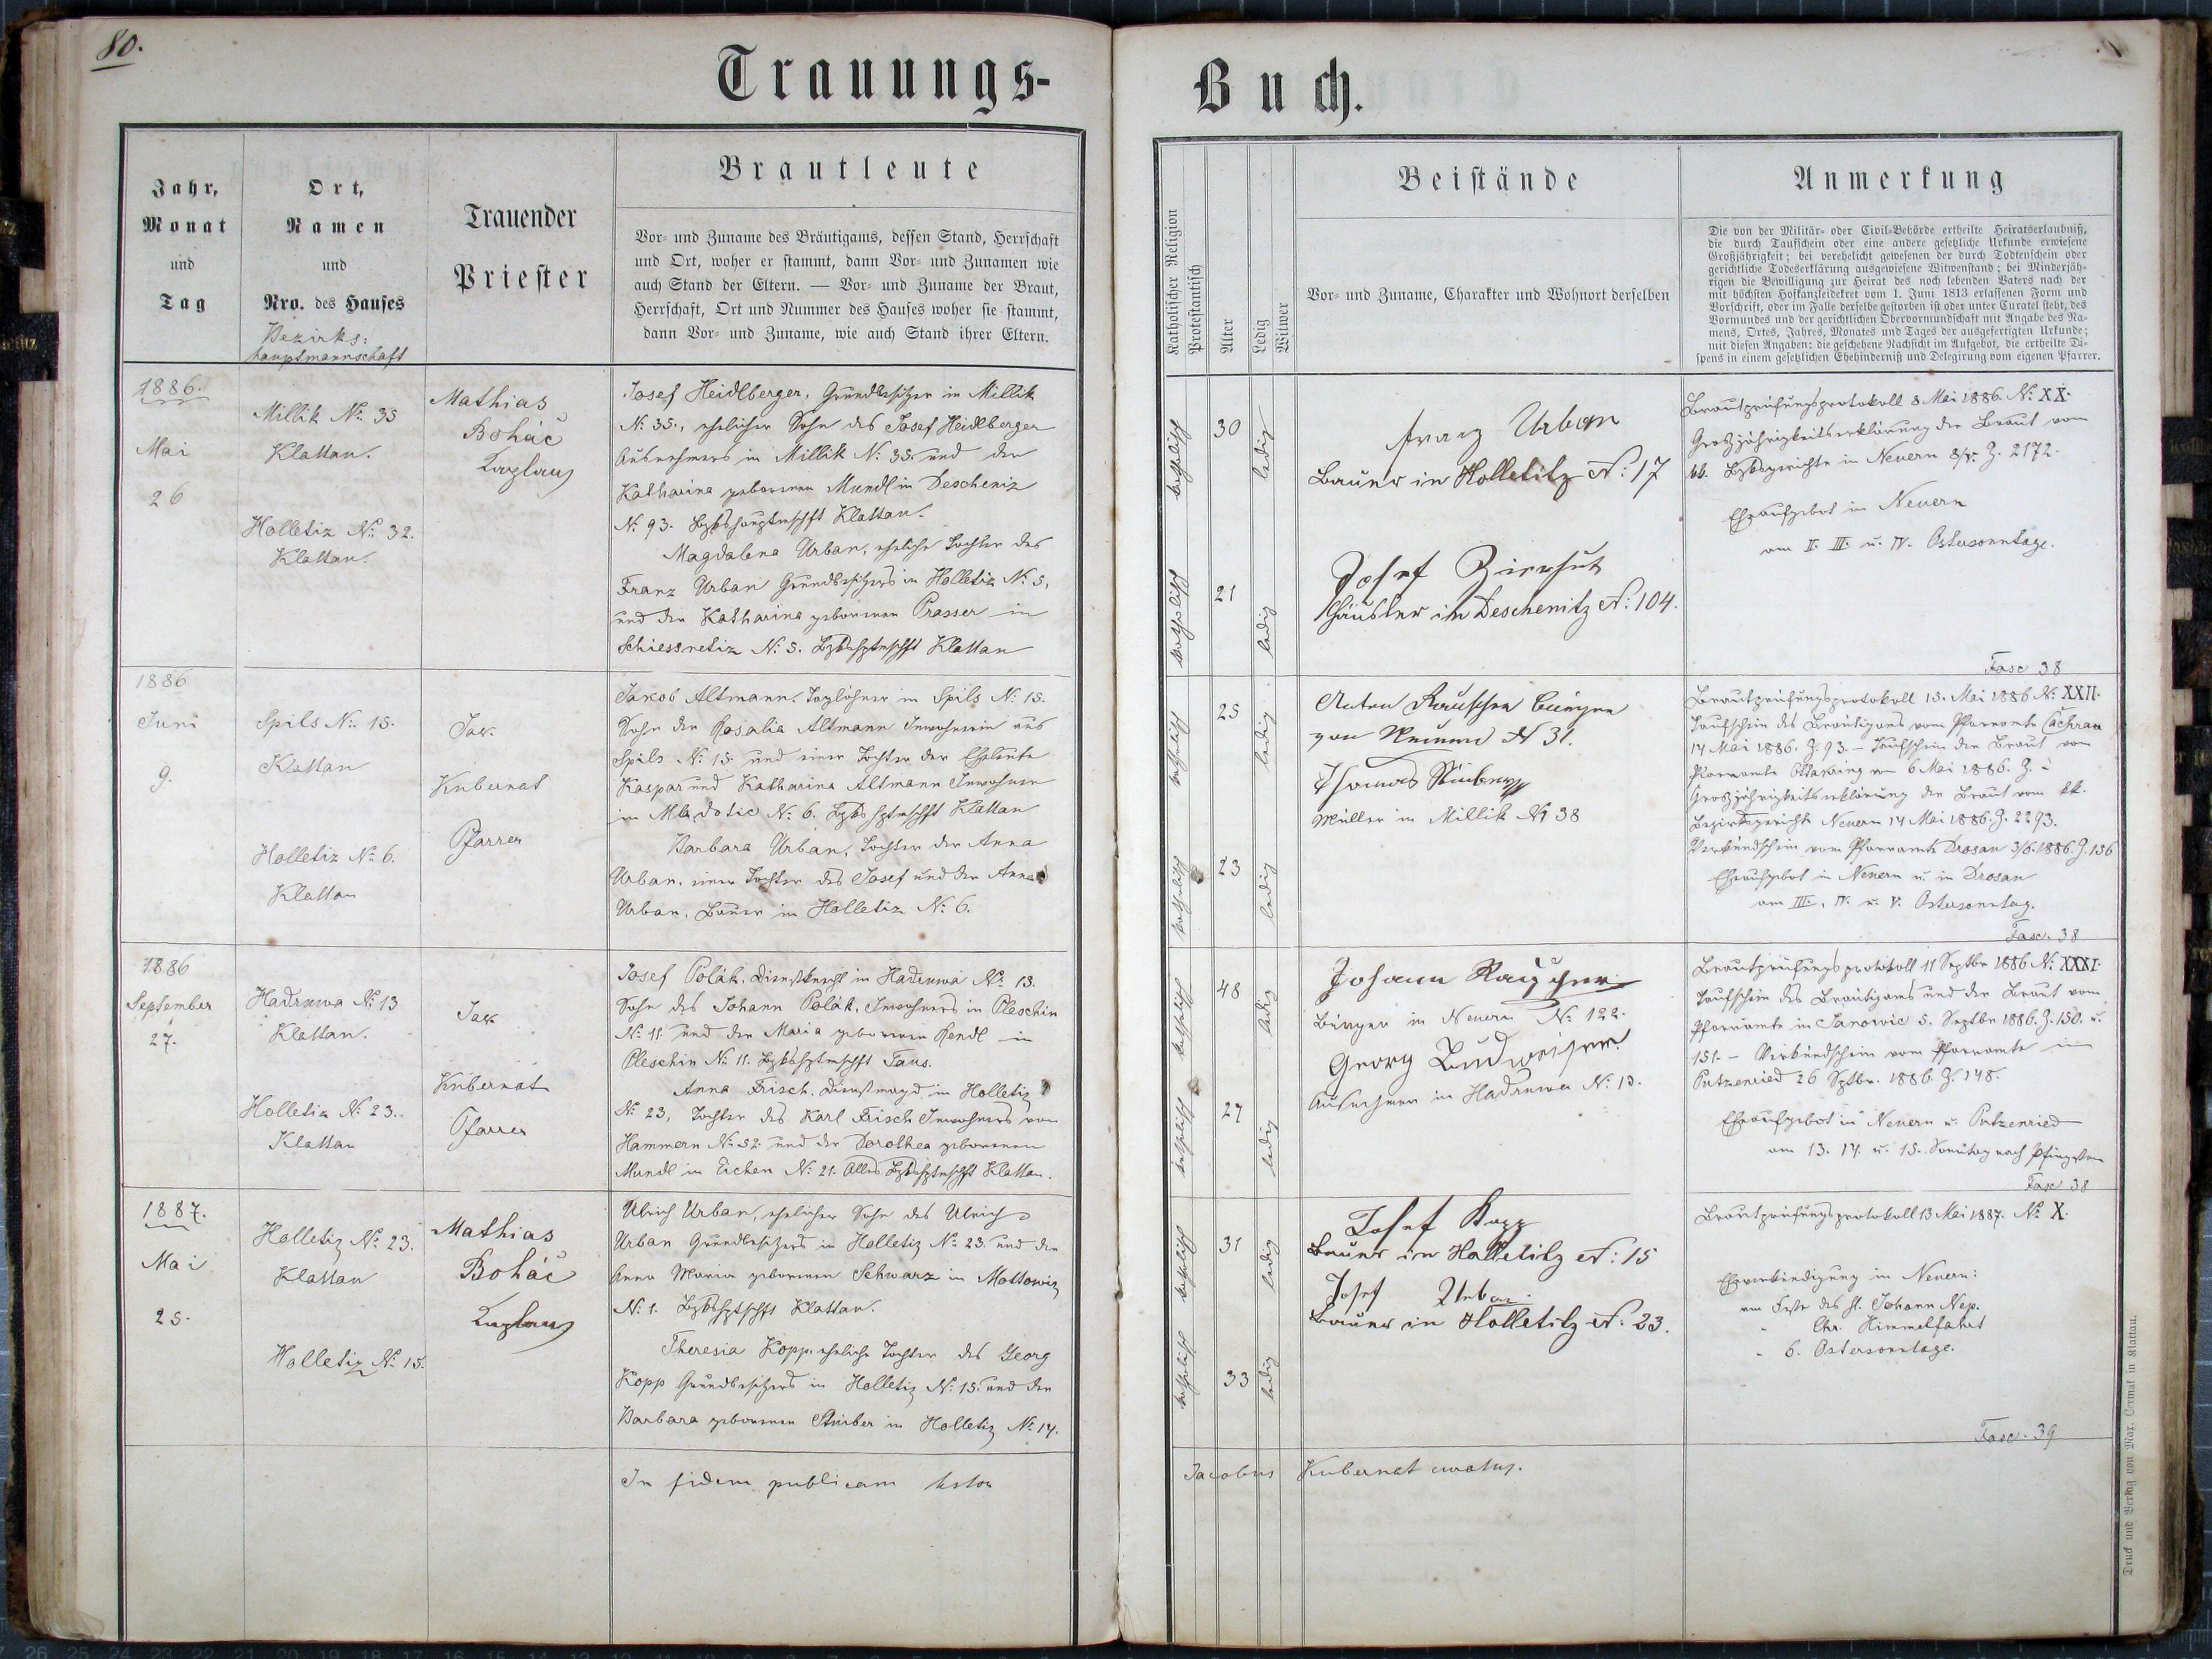 80.
Trauungs-
Jahr,
Monat
und
Tag
Ort,
Namen
und
Nro. des Hauses
Bezirks:
hauptmannschaft
Trauender
Priester
Brautleute
Vor- und Zuname des Bräutigams, dessen Stand, Herrschaft
und Ort, woher er stammt, dann Vor- und Zunamen wie
auch Stand der Eltern. — Vor- und Zuname der Braut,
Herrschaft, Ort und Nummer des Hauses woher sie stammt,
dann Vor- und Zuname, wie auch Stand ihrer Eltern.
1886.
Mai
26
Millik No. 35
Klattau.
Holletiz No. 32.
Klattau.
Mathias
Boháč
Kaplan
Josef Heidlberger, Grundbesitzer in Millik
No. 35., ehelicher Sohn des Josef Heidlberger
Ausnehmers in Millik No. 35. und der
Katharina geborenen Mundl in Descheniz
No. 93. Bzkshauptmschft Klattau.
Magdalena Urban, eheliche Tochter des
Franz Urban Grundbesitzers in Holletiz No. 5,
und der Katharina geborenen Prasser in
Schiessnetiz No. 5. Bzkshptmschft Klattau
1886
Juni
9.
Spils No. 15.
Klattau
Holletiz No. 6.
Klattau
Jak.
Kubernat
Pfarrer
Jakob Altmann, Taglöhner in Spils No. 15.
Sohn der Rosalia Altmann Inwohnerin aus
Spils No. 15. und einer Tochter der Eheleute
Kaspar und Katharina Altmann Inwohner
in Mladotic No. 6. Bzkshptmschft Klattau
Barbara Urban, Tochter der Anna
Urban, einer Tochter des Josef und der Anna
Urban, Bauer in Holletiz No. 6.
1886
September
27.
Hadruwa No. 13
Klattau.
Holletiz No. 23.
Klattau
Jak
Kubernat
Pfarrer
Josef Polák, Dienstknecht in Hadruwa No. 13.
Sohn des Johann Polák, Inwohners in Pleschin
No. 11. und der Maria geborenen Rendl in
Pleschin No. 11. Bzkshptmschft Taus.
Anna Frisch, Dienstmagd in Holletiz
No. 23, Tochter des Karl Frisch Inwohners von
Hammern No. 52 und der Dorothea geborenen
Mundl in Eichen No. 21. Alles Bzkshptmschft Klattau.
1887.
Mai
25.
Holletiz No. 23.
Klattau
Holletiz No. 15.
Mathias
Boháč
Kaplan
Ulrich Urban, ehelicher Sohn des Ulrich
Urban Grundbesitzers in Holletiz No. 23. und der
Anna Maria geborenen Schwarz in Mottowiz
No. 1. Bzkshptschft Klattau.
Theresia Kopp, eheliche Tochter des Georg
Kopp Grundbesitzers in Holletiz No. 15. und der
Barbara geborenen Stuiber in Holletiz No. 14.
In fidem publicam testor
Buch.
Katholischer Religion
Protestantisch
Alter
Ledig
Witwer
Beistände
Vor- und Zuname, Charakter und Wohnort derselben
Anmerkung
Die von der Militär- oder Civil-Behörde ertheilte Heiratserlaubniß,
die durch Taufschein oder eine andere gesetzliche Urkunde erwiesene
Großjährigkeit; bei verehelicht gewesenen der durch Todtenschein oder
gerichtliche Todeserklärung ausgewiesene Witwenstand; bei Minderjäh-
rigen die Bewilligung zur Heirat des noch lebenden Vaters nach der
mit höchsten Hofkanzleidekret vom 1. Juni 1813 erlassenen Form und
Vorschrift, oder im Falle derselbe gestorben ist oder unter Curatel steht, des
Vormundes und der gerichtlichen Obervormundschaft mit Angabe des Na-
mens, Ortes, Jahres, Monates und Tages der ausgefertigten Urkunde;
mit diesen Angaben: die geschehene Nachsicht im Aufgebot, die ertheilte Di-
spens in einem gesetzlichen Ehehinderniß und Delegirung vom eigenen Pfarrer.
katholisch
30
ledig
katholisch
21
ledig
Franz Urban
Bauer in Holletitz No: 17
Josef Zierhut
Häusler in Deschenitz No: 104.
Brautprüfungsprotokoll 8 Mai 1886. No. XX.
Großjährigkeitserklärung der Braut vom
kk. Bzksgerichte in Neuern 8/5. Z. 2172.
Eheaufgebot in Neuern
am II. III. u. IV. Ostersonntage.
Fasc 38
katholisch
25
ledig
katholisch
23
ledig
Anton
von Neuern No 31.
Thomas
Müller in Millik No 38
Brautprüfungsprotokoll 15. Mai 1886 No. XXII.
Taufschein des Bräutigams vom Pfarramte Čachrau
14 Mai 1886. Z. 93. – Taufschein der Braut vom
Pfarramte Ottakring vom 6 Mai 1886. Z. –
Großjährigkeitserklärung der Braut vom kk.
Bezirksgericht Neuern 14 Mai 1886. Z. 2293.
Verkündschein vom Pfarramte Drosau 3/6. 1886. Z. 136
Eheaufgebot in Neuern u. in Drosau
am III., IV. u. V. Ostersonntag.
Fasc. 38
katholisch
48
ledig
katholisch
27
ledig
Johann
Bürger in Neuern No. 122.
Georg Budweiser
Ausnehmer in Hadruwa No. 13.
Brautprüfungsprotokoll 11 Septbr 1886 No. XXXI.
Taufschein des Bräutigams und der Braut vom
Pfarramte in Janowic 5. Septbr 1886. Z. 150. u.
151. – Verkündschein vom Pfarramte in
Putzenried 26 Sptbr. 1886. Z. 148.
Eheaufgebot in Neuern u. Putzenried
am 13. 14. u. 15. Sonntag nach Pfingsten
Fasc 38
katholisch
31
ledig
katholisch
33
ledig
Josef Kopp
Bauer in Holletitz No: 15
Josef Urban
Bauer in Holletitz No. 23.
Brautprüfungsprotokoll 13 Mai 1887. No. X.
Eheverkündigung in Neuern:
am Feste des hl. Johann Nep.
" Chr. Himmelfahrt
" 6. Ostersonntage.
Fasc. 39
Jacobus Kubernat curatus.
Druck und Verlag von Max. Čermak in Klattau.